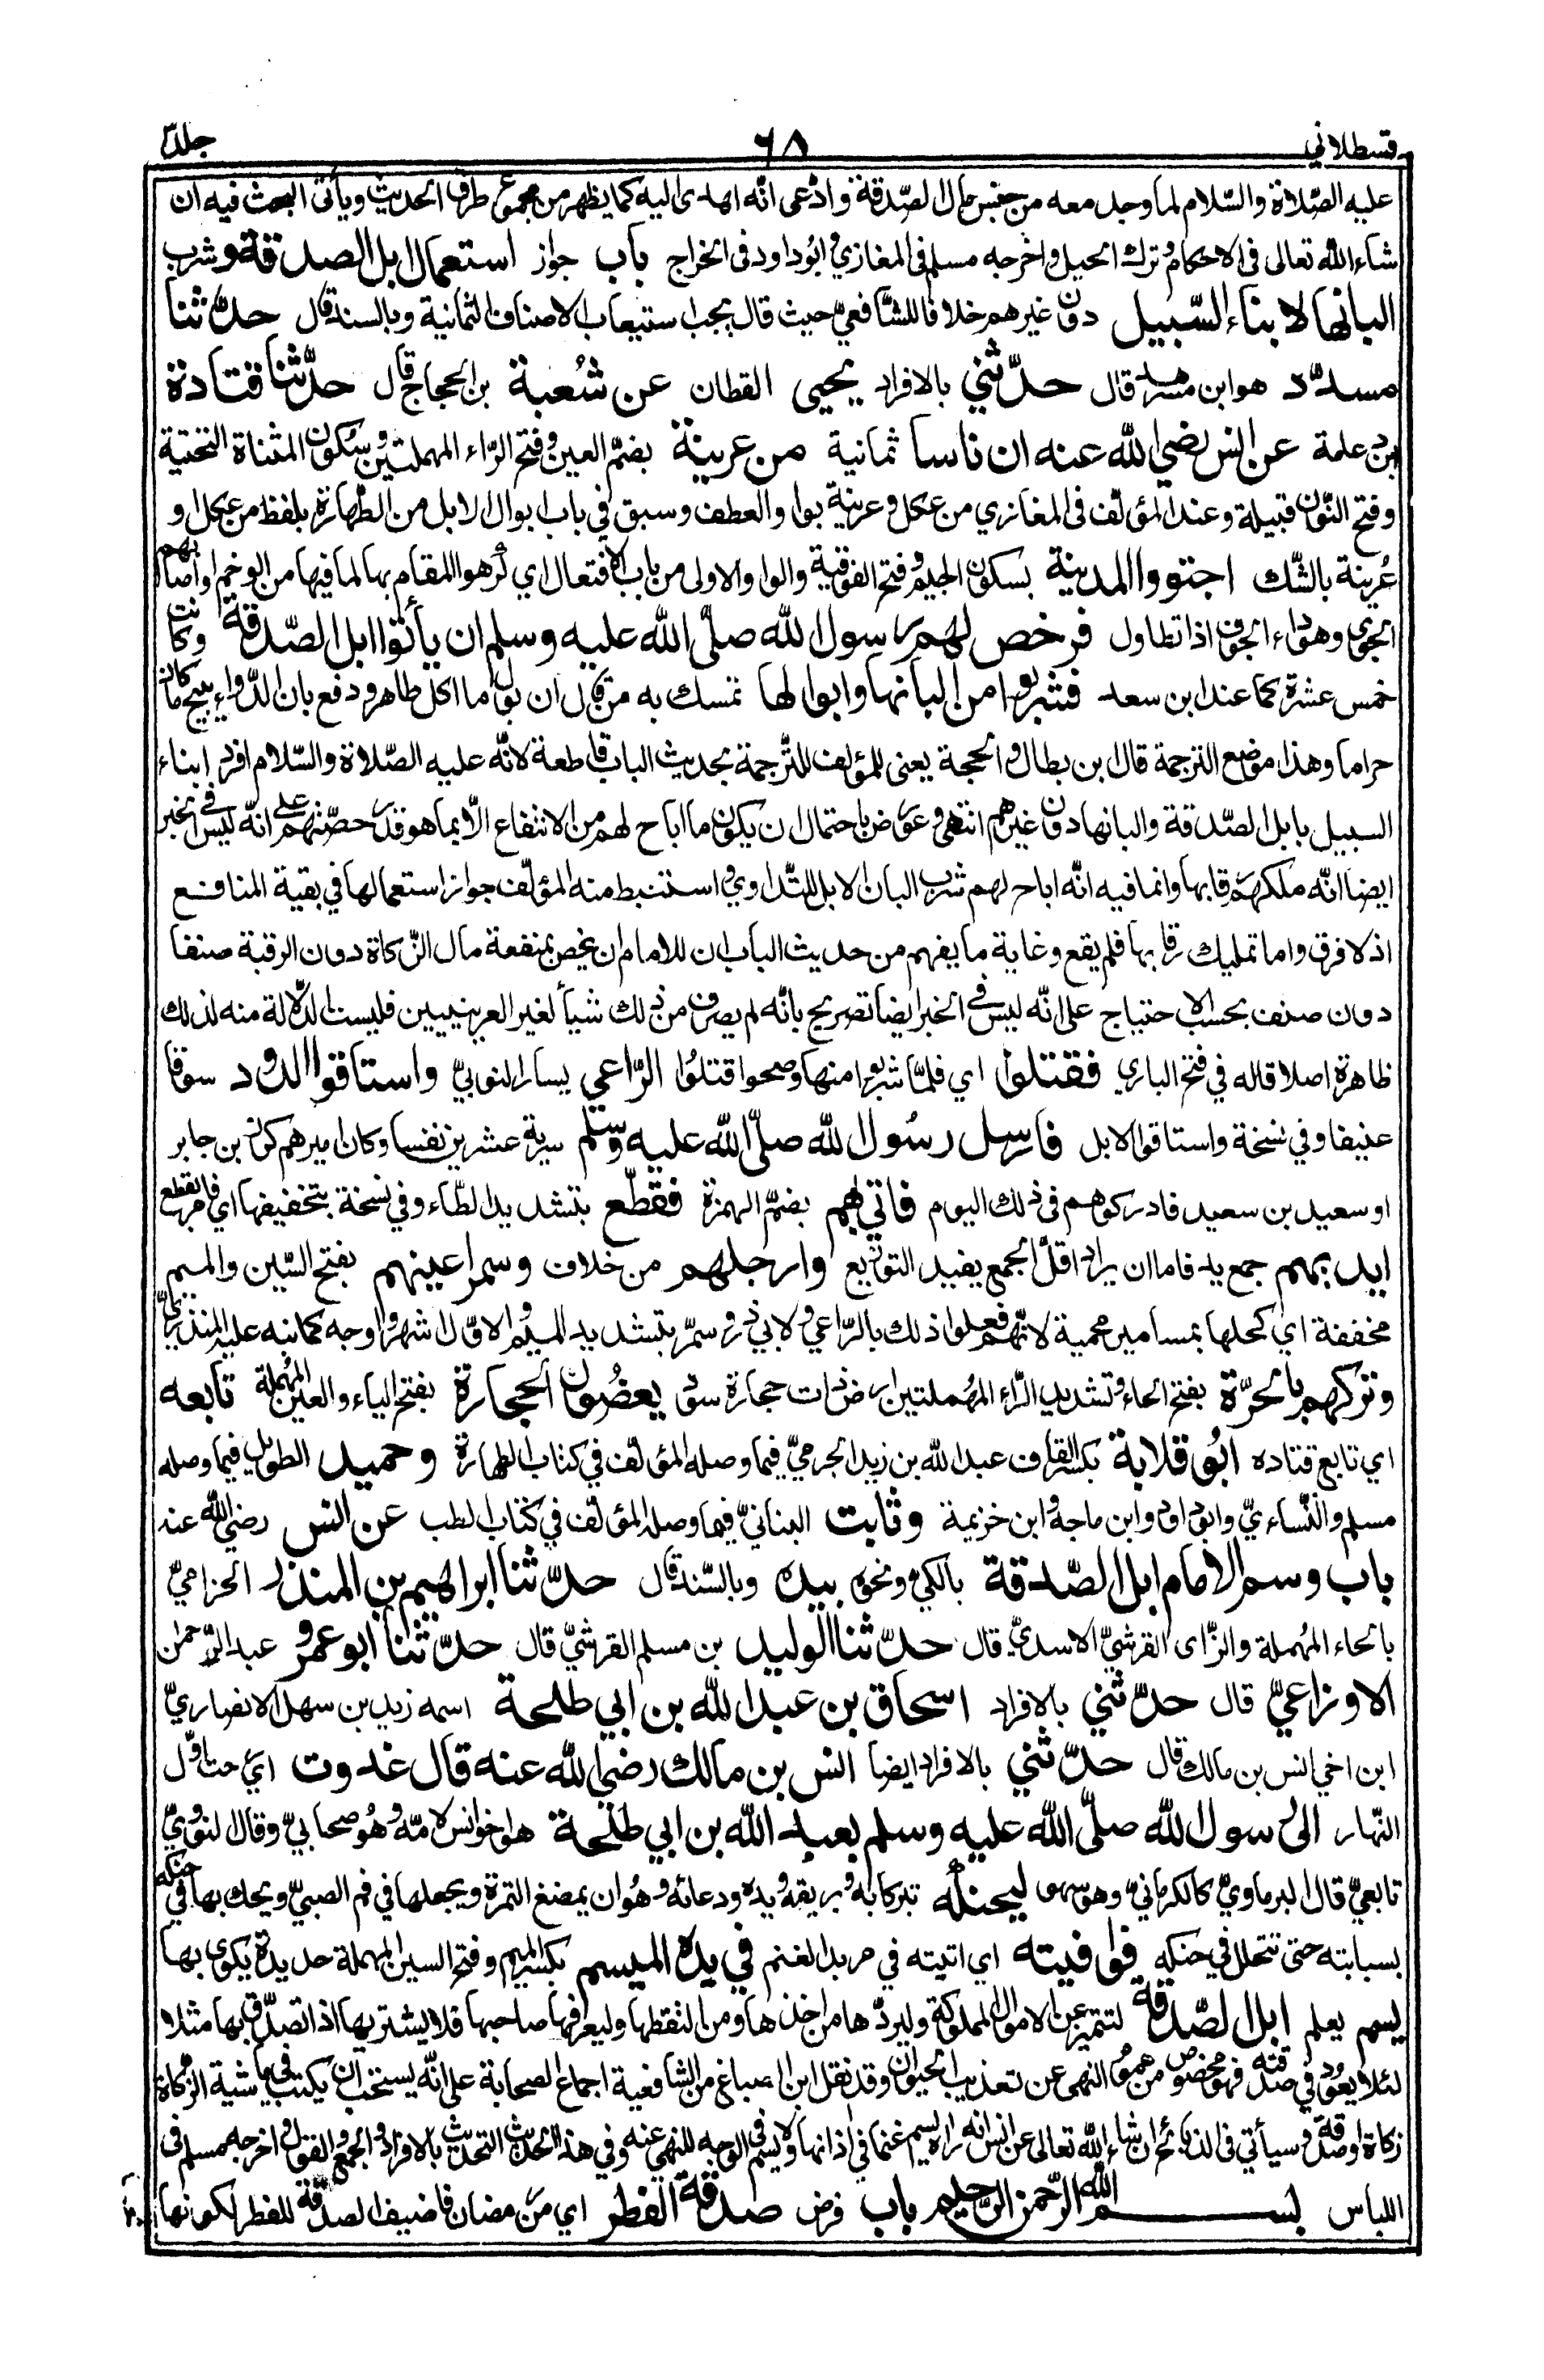 قسطلاني ٦٨ جلد٣
عليه الصّلاة والسّلام لما وجد معه من جنس مال الصّدقة وادّعى انّه اهدى اليه كما يظهر من مجموع طرق الحديث ويأتى البحث فيه ان
شاء الله تعالى فى الاحكام وترك الحيل واخرجه مسلم فى المغازي وابوداود فى الخراج باب جواز استعمال ابل الصدقة وشرب
البانها لابناء السّبيل دون غيرهم خلافا للشّافعيّ حيث قال يجب استيعاب الاصناف الثمانية وبالسند قال حدّثنا
مسدّد هو ابن مسرهد قال حدّثني بالافراد يحيى القطان عن شُعبة بن الحجاج قال حدّثنا قتادة
بن دعامة عن انس رضي الله عنه ان ناسا ثمانية من عرينة بضمّ العين وفتح الرّاء المهملتين وسكون المثناة التحتية
وفتح النّون قبيلة وعند المؤلّف فى المغازي من عكل وعرينة بواو العطف وسبق في باب ابوال الابل من الطّهارة بلفظ من عكل او
عُرينة بالشّك اجتووا المدينة بسكون الجيم وفتح الفوقية والواو الاولى من باب الافتعال اي كرهوا المقام بها لما فيها من الوخم او اصابهم
الجوى وهو داء الجوف اذا تطاول فرخص لهم رسول الله صلّى الله عليه وسلم ان يأتوا ابل الصّدقة وكانت
خمس عشرة كما عند ابن سعد فشربوا من البانها وابوالها تمسك به من قال ان بول ما اكل طاهر ودفع بان الدّواء يبيح ما كان
حراما وهذا موضع الترجمة قال ابن بطال والحجة يعنى للمؤلف للتّرجمة بحديث الباب قاطعة لانّه عليه الصّلاة والسّلام افرد ابناء
السبيل بابل الصّدقة والبانها دون غيرهم انتهى وعورض باحتمال ان يكون ما اباح لهم من الانتفاع الّا بما هو قدر حصّتهم على انّه ليس فى الخبر
ايضا انّه ملكهم رقابها وانما فيه انّه اباح لهم شرب البان الابل للتّداوي واستنبط منه المؤلّف جواز استعمالها في بقية المنافع
اذ لا فرق واما تمليك رقابها فلم يقع وغاية ما يفهم من حديث الباب ان للامام ان يخص بمنفعة مال الزّكاة دون الرقبة صنفا
دون صنف بحسب الاحتياج على انّه ليس في الخبر ايضا تصريح بانّه لم يصرف من ذلك شيأ لغير العرينيين فليست الدّلالة منه لذلك
ظاهرة اصلا قاله في فتح الباري فقتلوا اي فلمّا شربوا منها وصحوا قتلُوا الرّاعي يسار النوبيّ واستاقوا الذود سوقا
عنيفا وفي نسخة واستاقوا الابل فارسل رسُول الله صلّى الله عليه وسلم سرية عشرين نفسا وكان اميرهم كرز بن جابر
او سعيد بن سعيد فادركوهم فى ذلك اليوم فاتي بهم بضمّ الهمزة فقطّع بتشديد الطّاء وفي نسخة بتخفيفها اي فامر بقطع
ايديهم جمع يد فاما ان يراد اقلّ الجمع يفيد التوزيع وارجلهم من خلاف وسمر اعينهم بفتح السّين والميم
مخففة اي كحلها بمسامير محمية لانّهم فعلوا ذلك بالرّاعي ولابي ذر وسمّر بتشديد الميم والاوّل اشهر واوجه كما نبه عليه المنذريّ
وتركهم بالحرّة بفتح الحاء وتشديد الرّاء المهُملتين ارض ذات حجارة سود يعضُون الحجارة بفتح الياء والعين المُهملة تابعه
اي تابع قتاده ابُو قلابة بكسر القاف عبد الله بن زيد الجرميّ فيما وصله المؤلّف في كتاب الطهارة وحميد الطويل فيما وصله
مسلم والنّساءيّ وابو داود وابن ماجة وابن خزيمة وثابت البنانيّ فيما وصله المؤلّف في كتاب الطب عن انس رضي الله عنه
باب وسم الامام ابل الصّدقة بالكي ونحوه بيده وبالسّند قال حدّثنا ابراهيم بن المنذر الحزاميّ
بالحاء المُهملة والزّاى القرشيّ الاسديّ قال حدّثنا الوليد بن مسلم القرشيّ قال حدّثنا ابو عمرو عبد الرّحمن
الاوزاعيّ قال حدّثني بالافراد اسحاق بن عبد الله بن ابي طلحة اسمه زيد بن سهل الانصاريّ
ابن اخي انس بن مالك قال حدّثني بالافراد ايضا انس بن مالك رضي الله عنه قال غدوت اي رحت اوّل
النّهار الى رسول الله صلّى الله عليه وسلم بعبد الله بن ابي طلحة هو اخو انس لامّه وهُو صحابيّ وقال النوويّ
تابعيّ قال البرماويّ كالكرمانيّ وهو سهو ليحنكه تبركا به وبريقه ويده ودعائه وهُو ان يمضغ التمرة ويجعلها في فم الصبيّ ويحك بها في حنكه
بسبابته حتى تتحلل في حنكه فوافيته اي اتيته في مربد الغنم في يده الميسم بكسر الميم وفتح السين المهملة حديدة يكوى بها
يسم يعلم ابل الصّدقة لتتميز عن الاموال المملوكة وليردّها من اخذها ومن التقطها وليعرفها صاحبها فلا يشتريها اذا تصدّق بها مثلا
لئلا يعود في صدقته فهو مخصوص من عموم النهى عن تعذيب الحيوان وقد نقل ابن الصباغ من الشافعية اجماع الصحابة على انّه يستحب ان يكتب في ماشية الزكاة
زكاة او صدقة وسيأتي فى الذبائح ان شاء الله تعالى عن انس انه رآه يسم غنما في اذانها ولا يسم فى الوجه للنهي عنه وفي هذا الحديث التحديث بالافراد والجمع والقول واخرجه مسلم فى
اللباس بسم الله الرّحمن الرّحيم باب فرض صدقة الفطر اي من رمضان فاضيف الصدقة للفطر لكونها